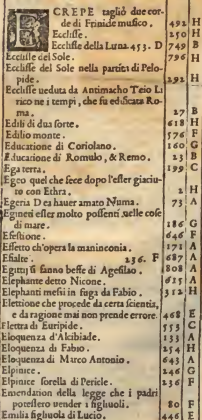 ECREPE tagliò due corde
di Frinide musico. 492 H
Eclisse. 250 H
Eclisse della Luna 453. D 749 B
Eclisse del Sole 796 H
Eclisse del Sole nella partita di Pelopide.
292 H
Eclisse ueduta da Antimacho Teio Lirico
ne i tempi, che fu edificata Roma.
27 B
Edili di dua sorte. 618 H
Edilio monte. 576 F
Educatione di Coriolano. 160 G
Educatione di Romulo, & Remo. 23 B
Ega terra. 199 C
Egeo quel che fece dopo l'esser giaciuto
con Ethra. 2 H
Egeria Dea hauer amato Numa. 73 A
Egineti esser molto possenti nelle cose
di mare. 186 G
Efestione. 646 F
Effetto ch'opera la maninconia. 171 A
Efialte. 236. F 687 A
Egittij si fanno beffe di Agesilao. 808 A
Elephante detto Nicone. 615 A
Elephanti messi in fuga da Fabio. 312 H
Elettione che procede da certa scientia,
e da ragione mai non prende errore. 468 E
Elettra di Euripide. 555 C
Eloquenza d'Alcibiade. 133 A
Eloquenza di Fabio. 254 H
Eloquenza di Marco Antonio. 643 A
Elpinice. 246 G
Elpinice sorella di Pericle. 236 F
Emendation della legge che i padri
potessero vender i figliuoli. 80 F
Emilia figliuola di Lucio. 446 E